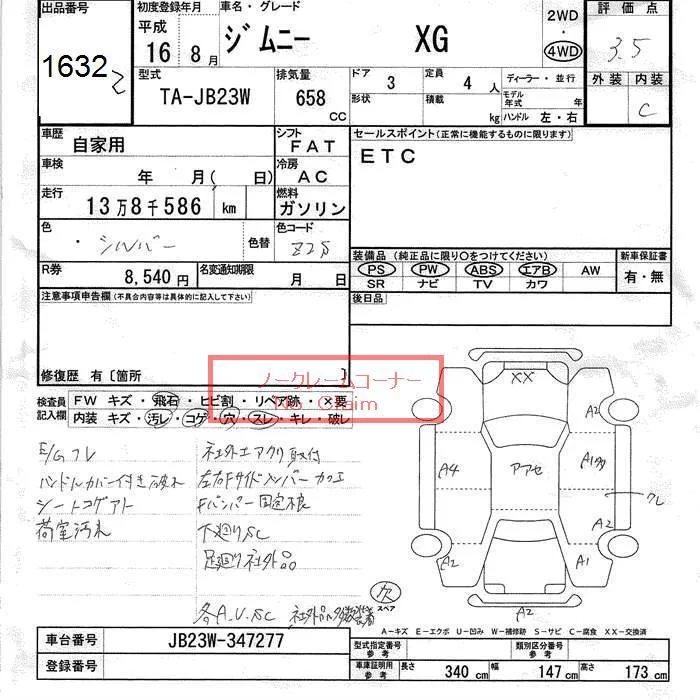 出品番号 初度登録年月 車名・グレード 2WD 評価点
1632 2 平成 16 年 8 月 ジムニー XG 4WD 3.5
型式 TA-JB23W 排気量 658 CC ドア 3 定員 4 人 ディーラー・並行 外装 内装
形状 積載 kg モデル年式 年 ハンドル 左・右 C
車歴 自家用 シフト FAT セールスポイント(正常に機能するものに限ります)
車検 年 月( 日) 冷房 AC ETC
走行 13万8千586 km 燃料 ガソリン
色 ・ シルバー 色替 色コード Z2S
装備品 (純正品に限り○をつけてください) 新車保証書
R券 8,540円 名変通知期限 月 日 PS PW ABS エアB AW 有・無
SR ナビ TV カワ
注意事項申告欄(不具合内容等は具体的に記入して下さい) 後日品
修復歴 有〔箇所 〕
ノークレームコーナー
No Claim
検査員記入欄 FW キズ・飛石・ヒビ割・リペア跡・×要
内装 キズ・汚レ・コゲ・穴・スレ・キレ・破レ
E/Gフレ 社外エアクリ取付
ハンドルカバー付き破れ 左右Fサイドメンバー加工
シートコゲアト Fバンパー固定不良
荷室汚れ 下廻りSC
足廻り社外品
各A.U.SC 社外品多数装着
XX
A2
A4 アアセ A1多
クレ
A2
A2 A1
欠 スペア A2
A-キズ E-エクボ U-凹み W-補修跡 S-サビ C-腐食 XX-交換済
車台番号 JB23W-347277 型式指定番号 参考 類別区分番号 参考
登録番号 車庫証明用 参考 長さ 340 cm 幅 147 cm 高さ 173 cm